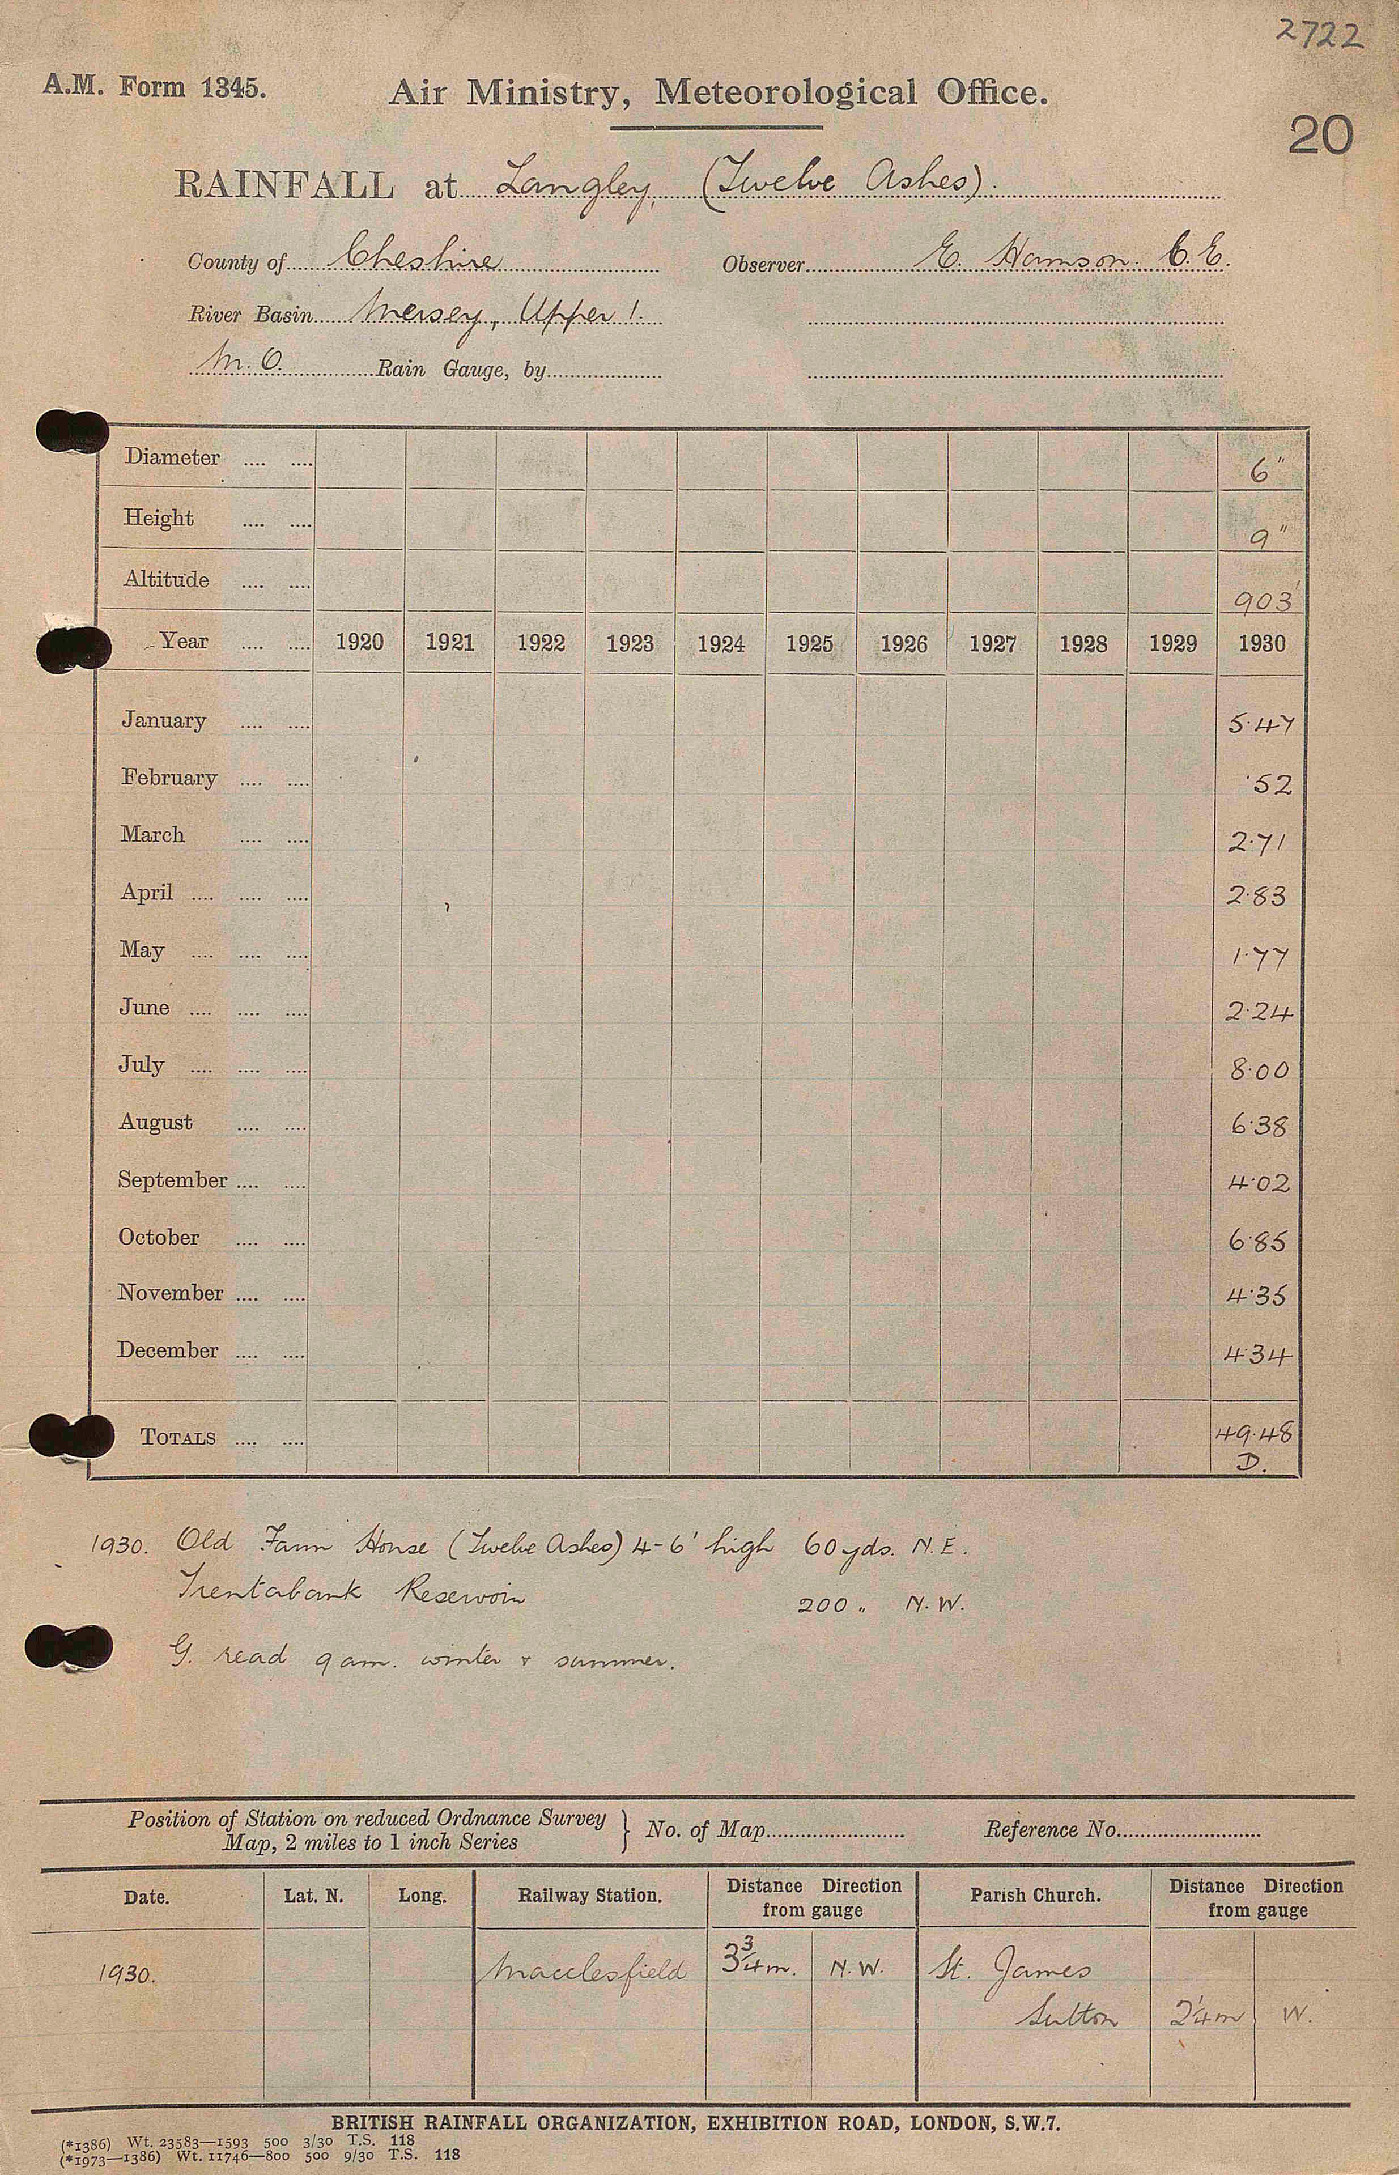 2722
A.M. Form 1345.
Air Ministry, Meteorological Office.
20
RAINFALL at Langley (Twelve Ashes).
County of Cheshire Observer E. Harrison C.E.
River Basin Mersey, Upper 1.
M.O. Rain Gauge, by
Diameter 6"
Height 9"
Altitude 903'
Year 1920 1921 1922 1923 1924 1925 1926 1927 1928 1929 1930
January 5.47
February .52
March 2.71
April 2.83
May 1.77
June 2.24
July 8.00
August 6.38
September 4.02
October 6.85
November 4.35
December 4.34
TOTALS 49.48
D.
1930. Old Farm House (Twelve Ashes) 4-6' high 60 yds. N.E.
Trentabank Reservoir 200 " N.W.
G. read 9 am. winter & summer.
Position of Station on reduced Ordnance Survey
Map, 2 miles to 1 inch Series } No. of Map Reference No.
Date. Lat. N. Long. Railway Station. Distance Direction from gauge Parish Church. Distance Direction from gauge
1930. Macclesfield 3 3/4 m. N.W. St. James
Sutton 2 1/4 m W.
BRITISH RAINFALL ORGANIZATION, EXHIBITION ROAD, LONDON, S.W.7.
(*1386) Wt. 23583—1593 500 3/30 T.S. 118
(*1973—1386) Wt. 11746—800 500 9/30 T.S. 118